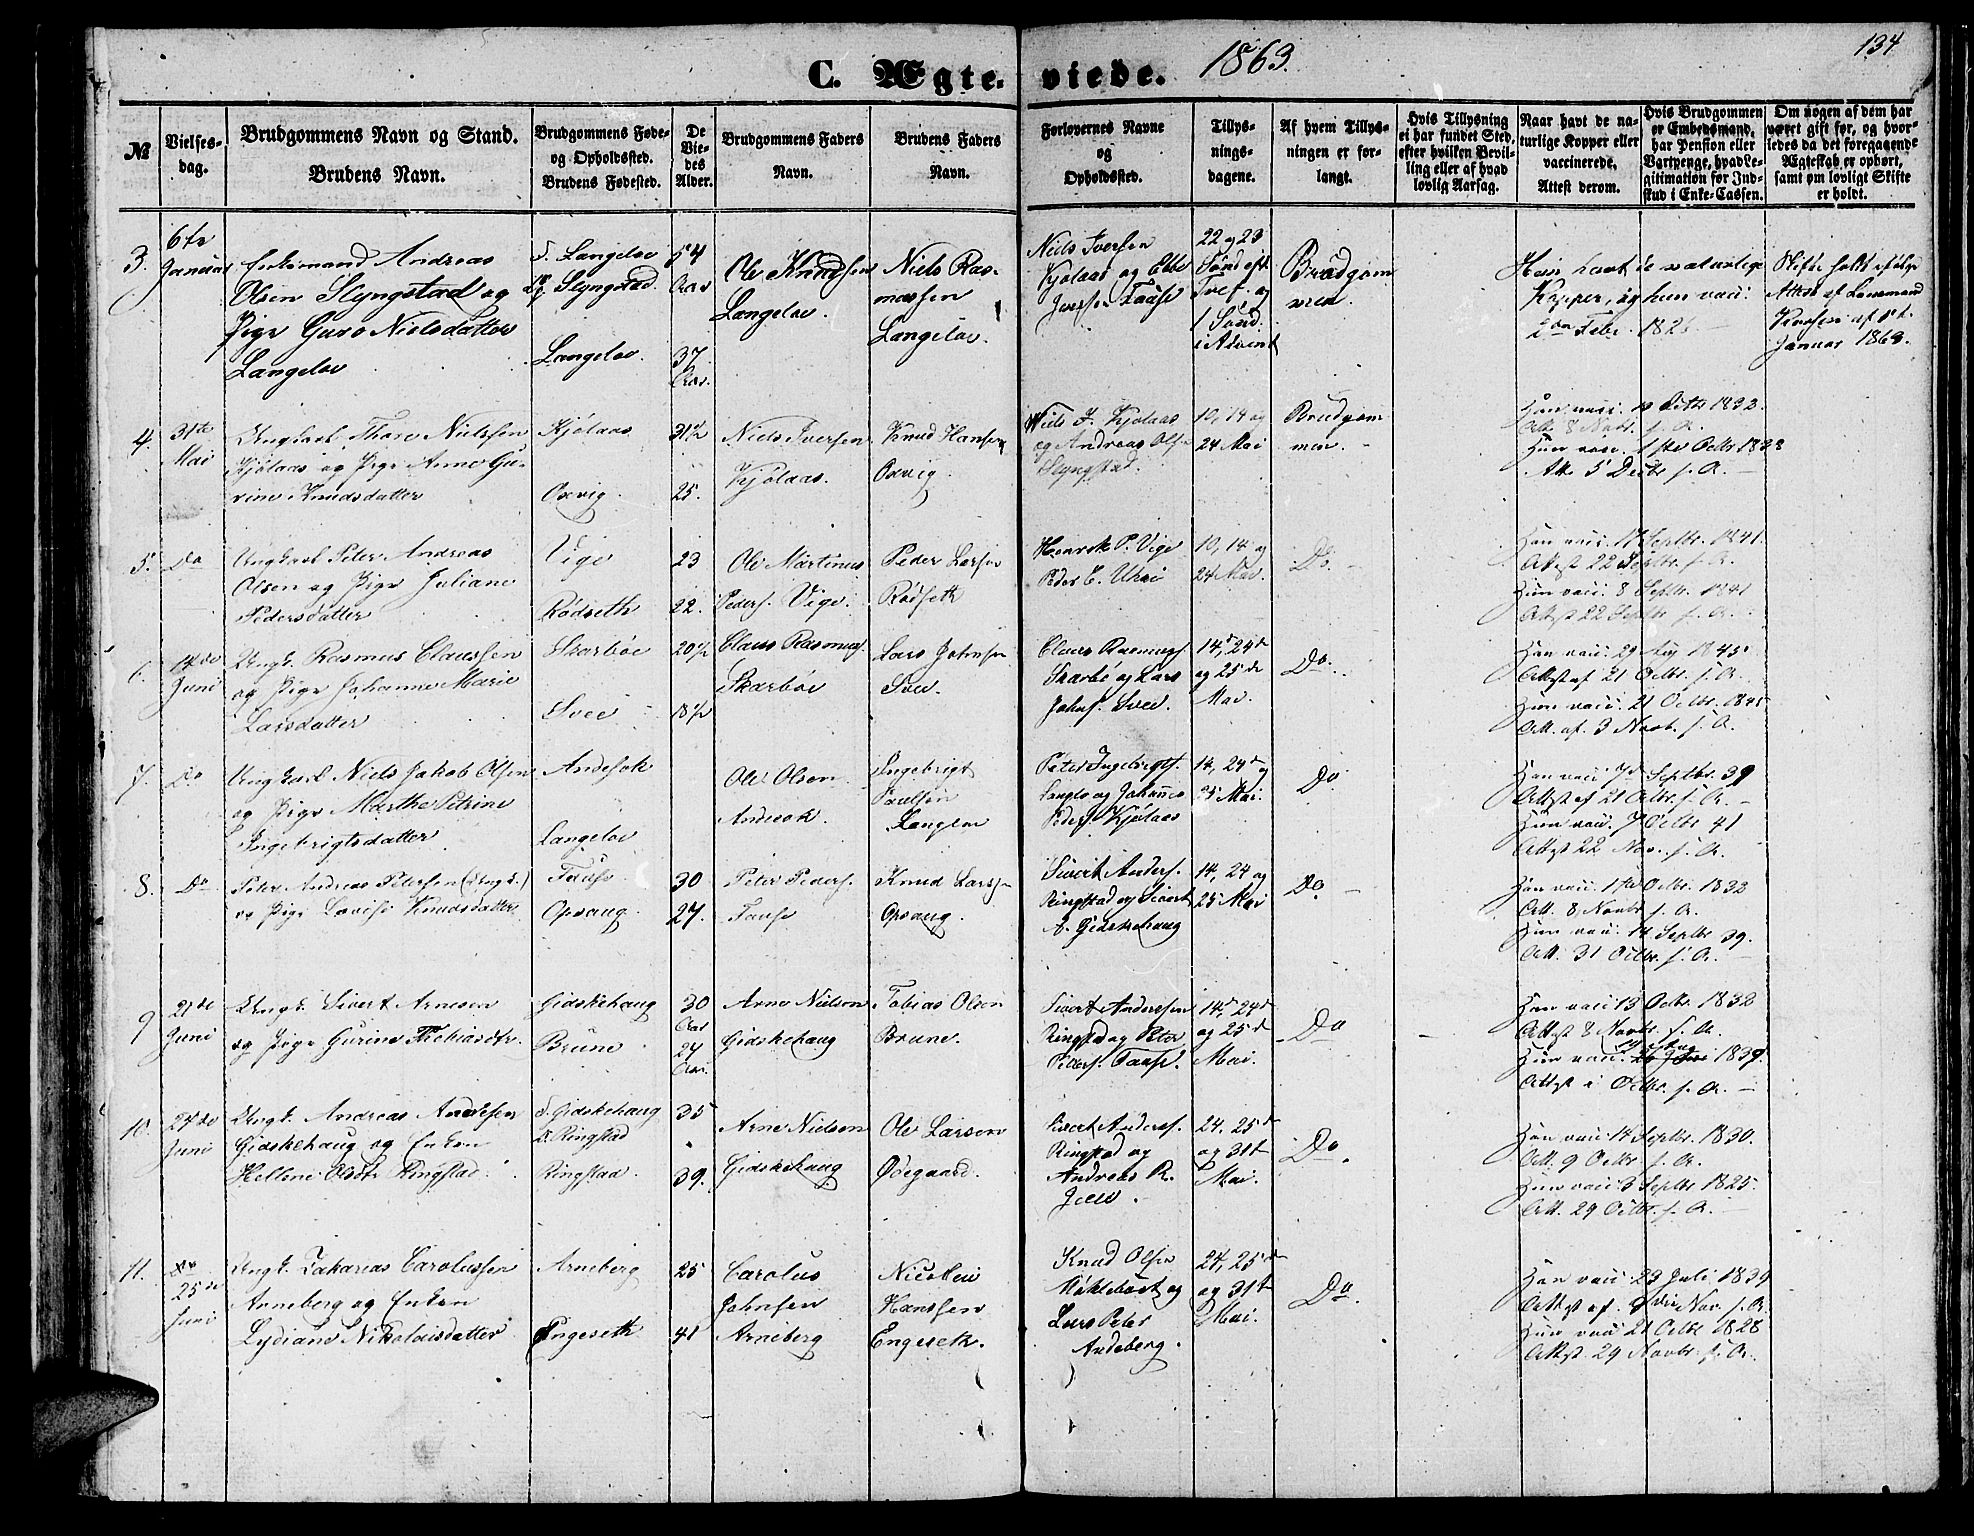 134
C. Ægteviede. 1863.
№
Vielsesdag.
Brudgommens Navn og Stand.
Brudens Navn.
Brudgommens Føde- og Opholdssted.
Brudens Fødested.
De Viedes Alder.
Brudgommens Faders Navn.
Brudens Faders Navn.
Forlovernes Navne og Opholdssted.
Tillysningsdagene.
Af hvem Tillysningen er forlangt.
Hvis Tillysning ei har fundet Sted, efter hvilken Bevilling eller af hvad lovlig Aarsag.
Naar havt de naturlige Kopper eller vaccinerede.
Attest derom.
Hvis Brudgommen er Embedsmand, har Pension eller Vartpenge, hvad Legitimation for Indskud i Enke-Cassen.
Om nogen af dem har været gift før, og hvorledes da det foregaaende Ægteskab er ophørt, samt om lovligt Skifte er holdt.
3.
6te Januar
Enkemand Andreas
Olsen Slyngstad og
Pige Guro Nielsdatter
Langeloe
f. Langeloe
Slyngstad
Langeloe.
54 Aar
37 Aar.
Ole Knudsen
Langeloe.
Niels Rasmussen
Langeloe.
Niels Iversen
Kjølaas og Ebbe
Jenssen Taufe
22 og 23
Sønd. eft.
Tref. og
1 Sønd.
i Advent
Brudgommen.
Han havt de naturlige
Kopper, og hun vacc.
Febr. 182
Skifte holdt ifølge
Attest af Lensmand
af 1st
Januar 1863.
4.
31te Mai
Ungkarl Thore Nielssen
Kjølaas og Pige Anne Gurine Knudsdatter
Kjølaas
Oxvig.
31½
25.
Niels Iversen
Kjølaas.
Knud Hansen
Oxvig.
Niels I. Kjølaas
og Andreas Olsen
Slyngstad.
10, 14 og
24 Mai
Brudgommen.
Han vacc. 10 Octbr 1832.
Att. 8 Novbr. s. A.
Hun vacc. 1ste Octbr 1838
Att. 5 Decbr s. A.
5.
Do
Ungkarl Peter Andreas
Olsen og Pige Juliane
Pedersdatter
Vige
Rødseth
23
22.
Ole Martinus
Peders. Vige.
Peder Larsen
Rødseth
Henrik P. Vige
Peder E. Uhri
10, 14 og
24 Mai.
Do.
Han vacc. 17 Septbr. 1841.
Attest 22 Septbr. s. A.
Hun vacc. 8 Septbr. 1841
Attest 22 Septbr s. A.
6.
14de Juni
Ungk. Rasmus Claussen
og Pige Johanne Marie
Larsdatter
Skarbøe
Svee
20½
18½
Claus Rasmus.
Skarbøe
Lars Johnsen
Svee.
Claus Rasmus.
Skarbø og Lars
Johns. Svee.
14, 24
og 25de
Mai.
Do.
Han vacc. 29 Aug 1845.
Attest af 21 Octbr. s. A.
Hun vacc. 21 Octbr. 1845
Att. af. 3 Novb. s. A.
7.
Do
Ungkarl Niels Jakob Olsen
og Pige Marthe Petrine
Ingebrigtsdatter
Andesok
Langeloe
Ole Olsen
Andesok.
Ingebrigt
Paulsen
Langeloe
Peter Ingebrigts.
Langlo og Johannes
Peders. Kjølaas
14, 24de og
25 Mai.
Do
Han vacc 7d Septbr. 39
Attest af 21 Octbr. s. A.
Hun vacc. 7 Octbr 41
Attest 22 Nov. s. A.
8.
Do
Peter Andreas Petersen (Ungk.)
og Pige Lovise Knudsdatter
Taufe
Opsaug.
30
27.
Peter Peders.
Taufe
Knud Larssen
Opsaug.
Sivert Anders.
Ringstad og Sivert
A. Gidskehaug
14, 24 og
25 Mai
Do
Han vacc. 1ste Octbr 1832
Att. 8 Novbr s. A.
Hun vacc. 14 Septbr 39.
Att. 31 Octbr. s. A.
9
21de Juni
Ungk. Sivert Arnesen
og Pige Gurine Tobiasdtr.
Gidskehaug
Brune
30 Aar
24 Aar.
Arne Nielsen
Gidskehaug
Tobias Olsen
Brune.
Sivert Anderssen
Ringstad og Peter
Peders. Taufe.
14, 24de
og 25de
Mai.
Do
Han vacc 13 Octbr. 1832
Attest 8 Novbr. s. A.
Hun vacc. 1839.
Attest i Octbr. s. A.
10.
24de Juni
Ungk. Andreas Arnesen
Gidskehaug og Enken
Hellene Olsdtr Ringstad.
f. Gidskehaug
Ringstad
Ringstad.
35
39.
Arne Nielsen
Gidskehaug
Ole Larsen
Ødegaard.
Sivert Anders.
Ringstad og
Andreas R.
24, 25de
og 31te
Mai.
Do.
Han vacc 14 Septbr. 1830.
Att. 9 Octbr. s. A.
Hun vacc 3 Septbr 1825.
Att. 29 Octbr. s. A.
11.
25de Juni
Ungk. Zakarias Carolussen
Arneberg og Enken
Lydiane Nikolaisdatter
Arneberg
Engeseth
25
41
Carolus
Johnsen
Arneberg
Nicolai
Hanssen
Engeseth.
Knud Olsen
Møklebust og
Lars Peter
Andeberg.
24, 25de
og 31te
Mai.
Do.
Han vacc 23 Juli 1839
Attest af Nov. s. A.
Hun vacc 21 Octbr 1828
Attest. 29 Novbr. s. A.